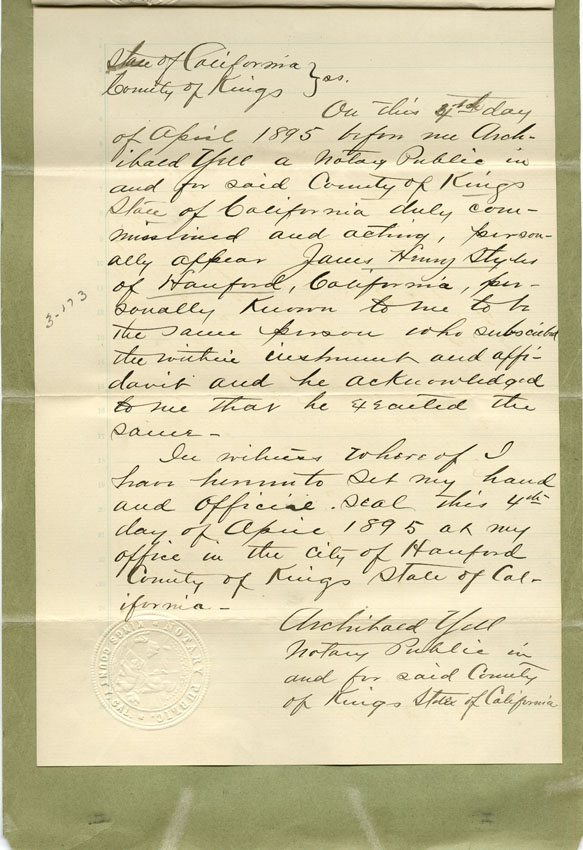 State of California } ss.
County of Kings
On this 4th day
of April 1895 before me Arch-
ibald Yell a Notary Public in
and for said County of Kings
State of California duly com-
missioned and acting, person-
ally appear James Henry Styles
of Hanford, California, per-
sonally known to me to be
the same person who subscribed
the within instrument and affi-
davit and he acknowledged
to me that he executed the
same -
In witness whereof I
have hereunto set my hand
and official seal this 4th
day of April 1895 at my
office in the city of Hanford
County of Kings State of Cal-
ifornia -
Archibald Yell
Notary Public in
and for said County
of Kings State of California
3-173
NOTARY PUBLIC
KINGS COUNTY, CAL.